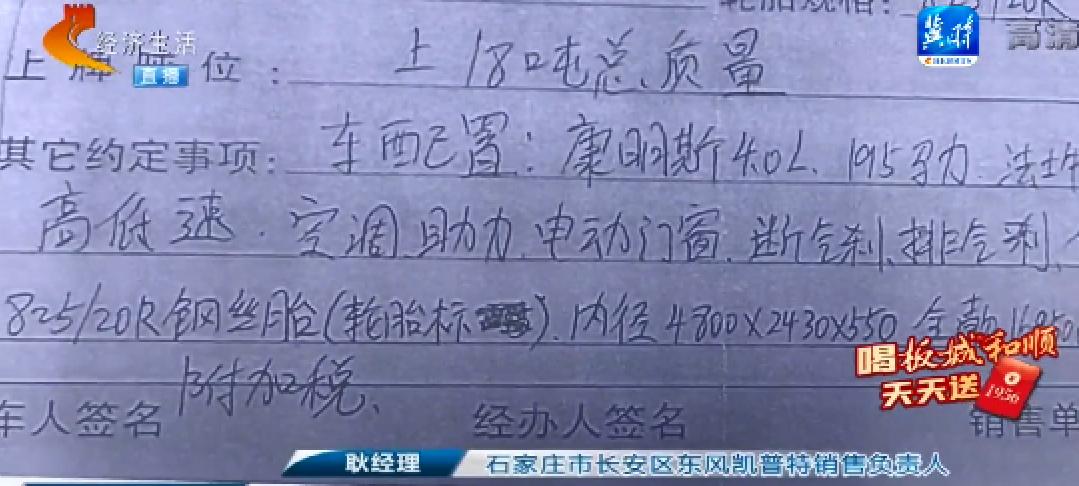 经济生活
直播
冀时
高清
轮胎规格:
上牌吨位: 上18吨总质量
其它约定事项: 车西配置:康明斯4.0L、195马力、法士
高低速、空调、助力、电动门窗、断气刹、排气刹、
825/20R钢丝胎(轮胎标 )、内径4800X2430X550 全款
附加税、
唱板城和顺
天天送
1956
车人签名
经办人签名
销售单
耿经理 石家庄市长安区东风凯普特销售负责人